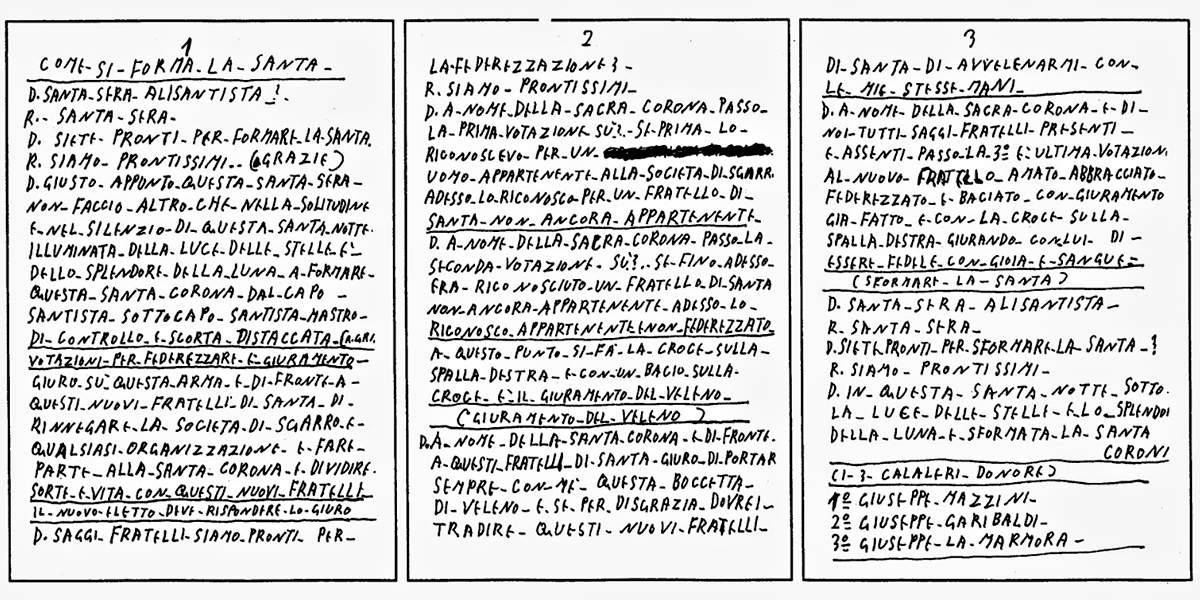 1
COME-SI-FORMA-LA-SANTA-
D. SANTA-SERA-ALISANTISTA-?.
R.- SANTA-SERA-
D. SIETE PRONTI-PER-FORMARE-LA-SANTA.
R. SIAMO- PRONTISSIMI.. (GRAZIE)
D. GIUSTO-APPUNTO-QUESTA-SANTA-SERA-
NON-FACCIO-ALTRO-CHE-NELLA-SOLITUDINE
E-NEL-SILENZIO-DI-QUESTA-SANTA-NOTTE.
ILLUMINATA-DELLA-LUCE-DELLE-STELLE-E'-
DELLO-SPLENDORE-DELLA-LUNA-A-FORMARE-
QUESTA-SANTA-CORONA-DAL-CAPO -
SANTISTA-SOTTOCAPO-SANTISTA-MASTRO-
DI-CONTROLLO-E-SCORTA-DISTACCATA-
VOTAZIONI-PER-FEDEREZZARE-E-GIURAMENTO-
GIURO-SU-QUESTA-ARMA-E-DI-FRONTE-A-
QUESTI-NUOVI-FRATELLI-DI-SANTA-DI-
RINNEGARE-LA-SOCIETA-DI-SGARRO-E-
QUALSIASI-ORGANIZZAZIONE-E-FARE-
PARTE-ALLA-SANTA-CORONA-E-DIVIDIRE.
SORTE-E-VITA-CON-QUESTI-NUOVI-FRATELLI
IL-NUOVO-ELETTO-DEVE-RISPONDERE-LO-GIURO
D. SAGGI-FRATELLI-SIAMO-PRONTI-PER-
2
LA-FEDEREZZAZIONE?-
R. SIAMO- PRONTISSIMI-
D. A-NOME-DELLA-SACRA-CORONA-PASSO-
LA-PRIMA-VOTAZIONE SU?.-SE-PRIMA-LO-
RICONOSCEVO-PER-UN-
UOMO-APPARTENENTE-ALLA-SOCIETA-DI-SGARR.
ADESSO-LO-RICONOSCO-PER-UN-FRATELLO-DI-
SANTA-NON-ANCORA-APPARTENENTE-
D. A-NOME-DELLA-SACRA-CORONA-PASSO-LA-
SECONDA-VOTAZIONE- SU?..SE-FINO-ADESSO-
ERA-RICONOSCIUTO-UN-FRATELLO-DI-SANTA
NON-ANCORA-APPARTENENTE-ADESSO-LO-
RICONOSCO-APPARTENENTE-E-NON-FEDEREZZATO
A-QUESTO-PUNTO-SI-FA'-LA-CROCE-SULLA-
SPALLA-DESTRA-E-CON-UN-BACIO-SULLA-
CROCE-E'-IL-GIURAMENTO-DEL-VELENO-
(GIURAMENTO-DEL-VELENO)
D. A-NOME-DELLA-SANTA-CORONA-E-DI-FRONTE.
A-QUESTI-FRATELLI-DI-SANTA-GIURO-DI-PORTAR
SEMPRE-CON-ME'-QUESTA-BOCCETTA-
DI-VELENO-E-SE-PER-DISGRAZIA-DOVREI-
TRADIRE-QUESTI-NUOVI-FRATELLI-
3
DI-SANTA-DI-AVVELENARMI-CON-
LE-MIE-STESSE-MANI-
D. A-NOME-DELLA-SACRA-CORONA-E-DI-
NOI-TUTTI-SAGGI-FRATELLI-PRESENTI-
E-ASSENTI-PASSO-LA-3º-E'-ULTIMA-VOTAZION.
AL-NUOVO-FRATELLO-AMATO-ABBRACCIATO-
FEDEREZZATO-E-BACIATO-CON-GIURAMENTO
GIA-FATTO-E-CON-LA-CROCE-SULLA-
SPALLA-DESTRA-GIURANDO-CON-LUI- DI-
ESSERE-FEDELE-CON-GIOIA-E-SANGUE=
(SFORMARE-LA-SANTA)
D. SANTA-SERA-ALISANTISTA-
R. SANTA-SERA-
D. SIETE PRONTI-PER-SFORMARE-LA-SANTA-?
R. SIAMO- PRONTISSIMI-
D. IN-QUESTA-SANTA-NOTTE-SOTTO.
LA-LUCE-DELLE-STELLE-E-LO-SPLENDOI
DELLA-LUNA-E-SFORMATA-LA-SANTA
CORONI
(I-3-CALALERI-DONORE)
1º GIUSEPPE-MAZZINI-
2º GIUSEPPE-GARIBALDI-
3º GIUSEPPE-LA-MARMORA-